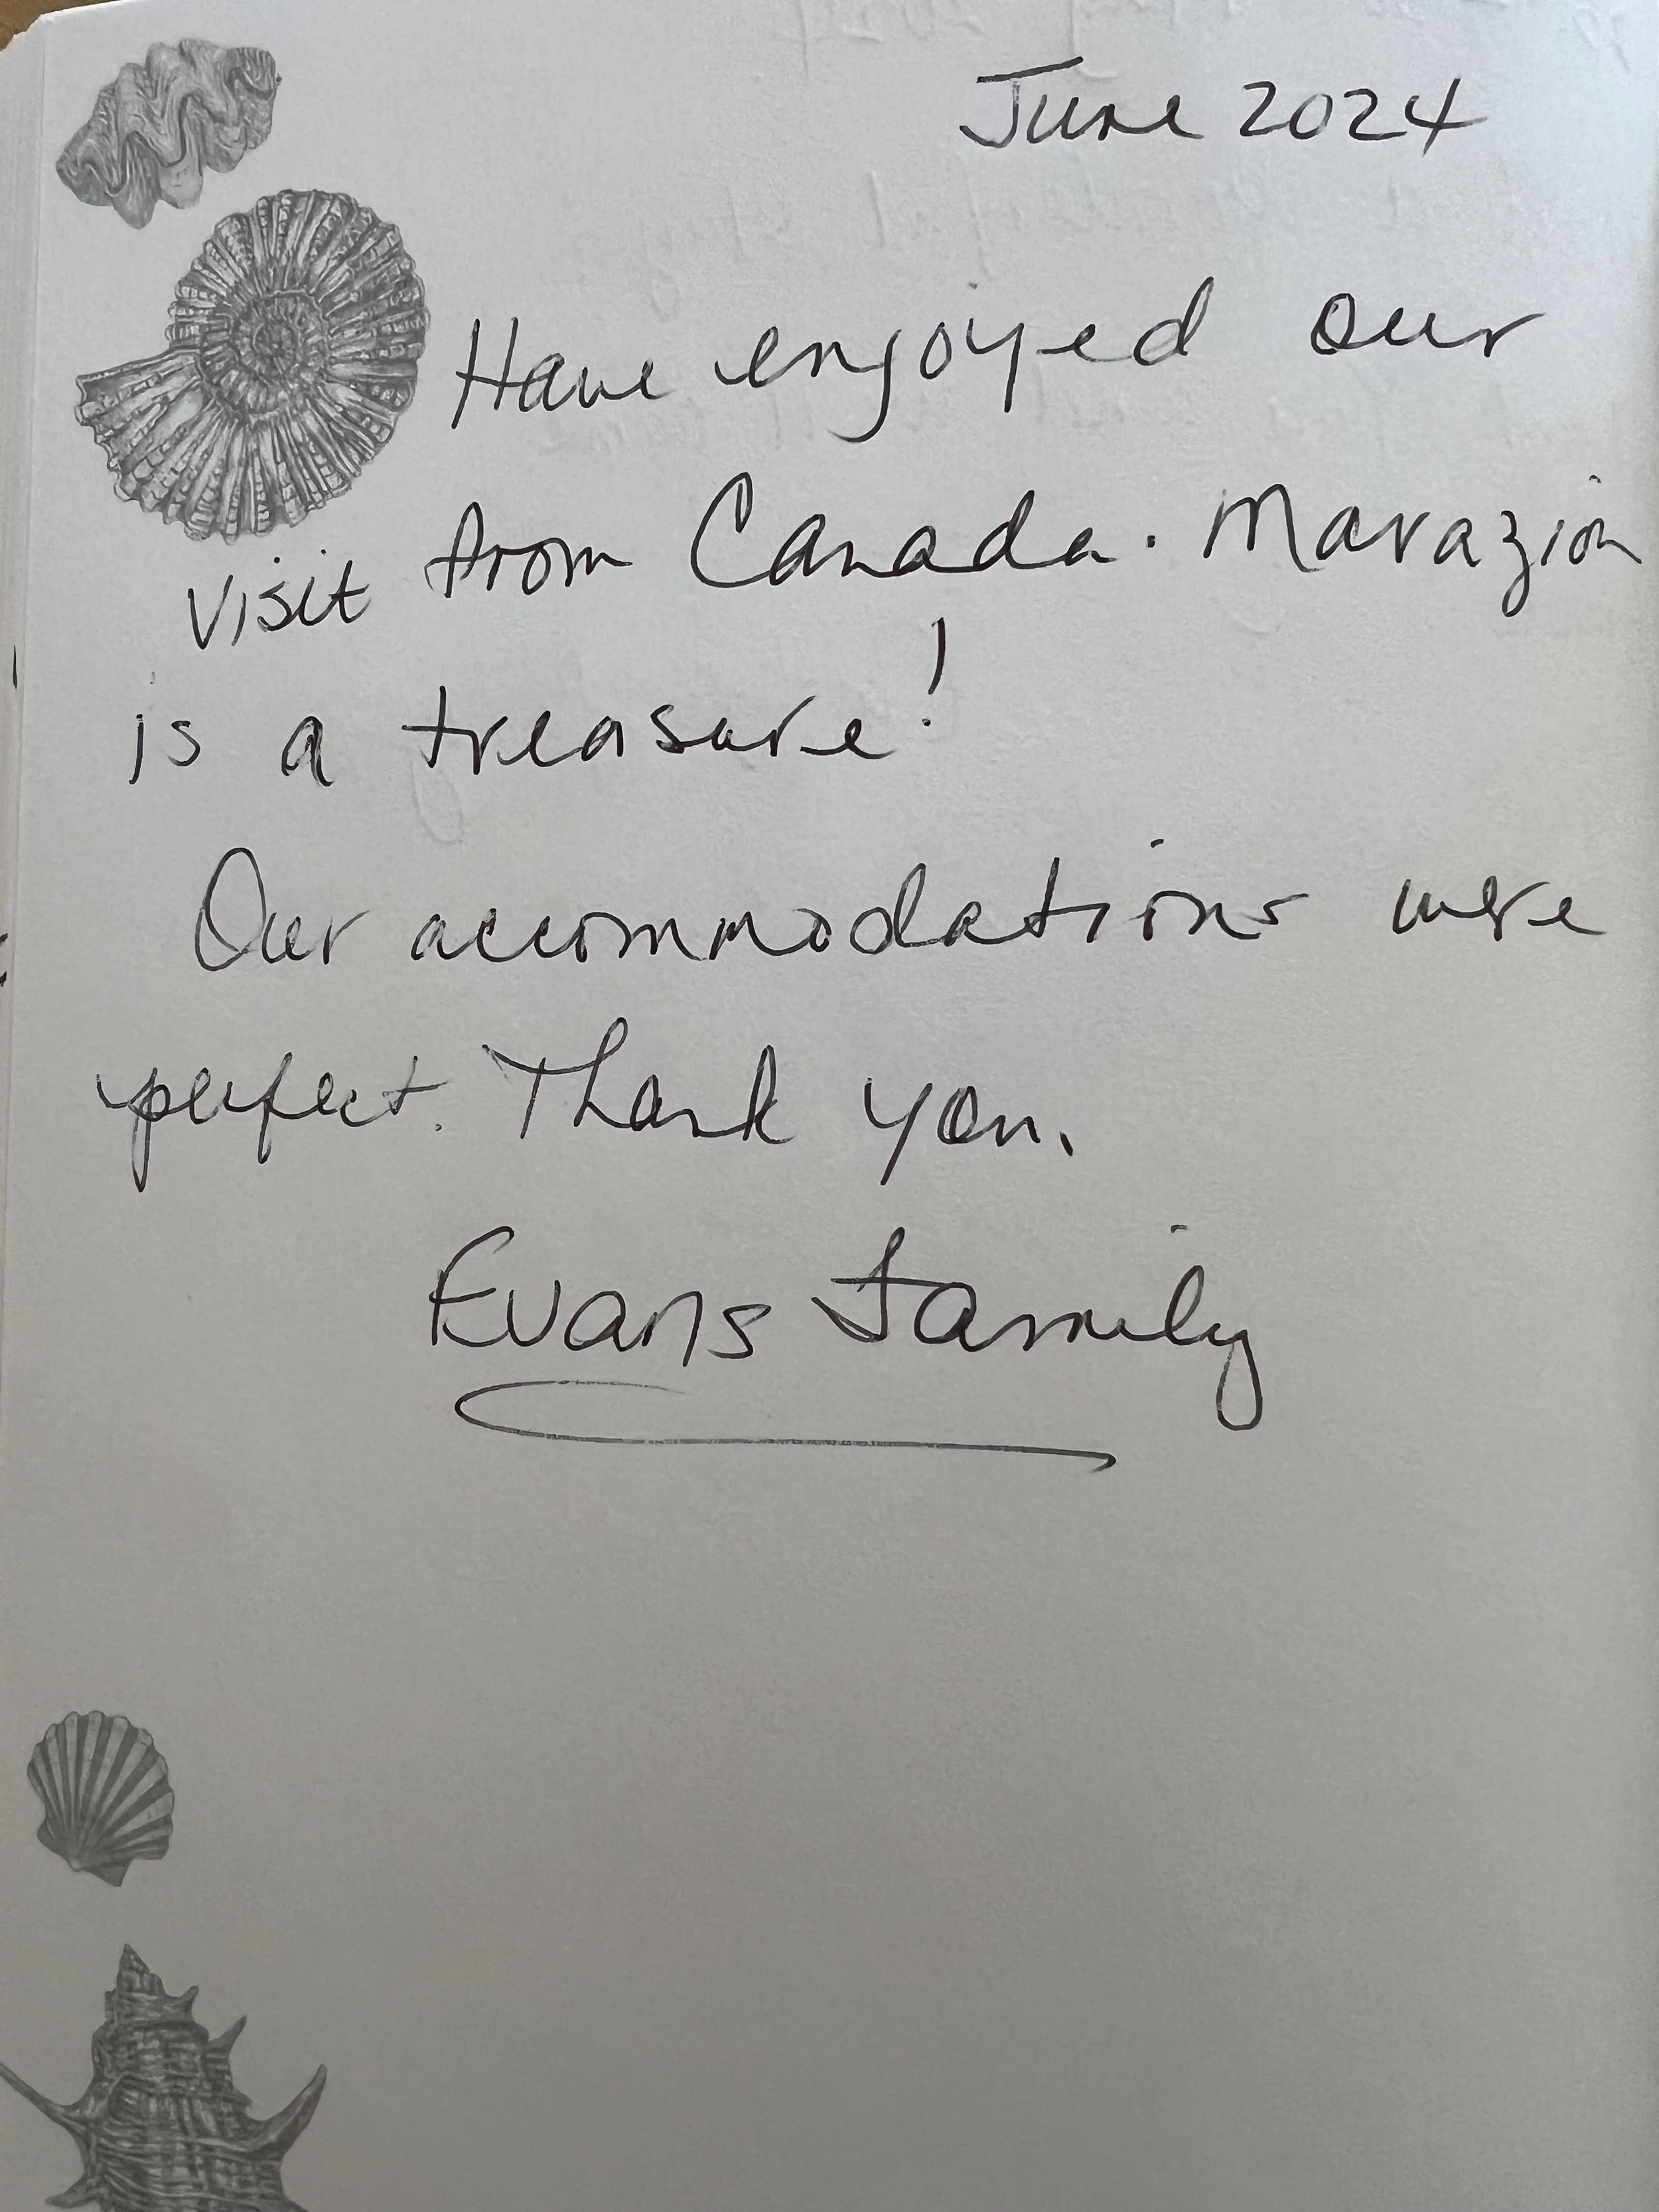 June 2024
Have enjoyed our
visit from Canada. Marazion
is a treasure!
Our accommodations were
perfect. Thank you.
Evans Family